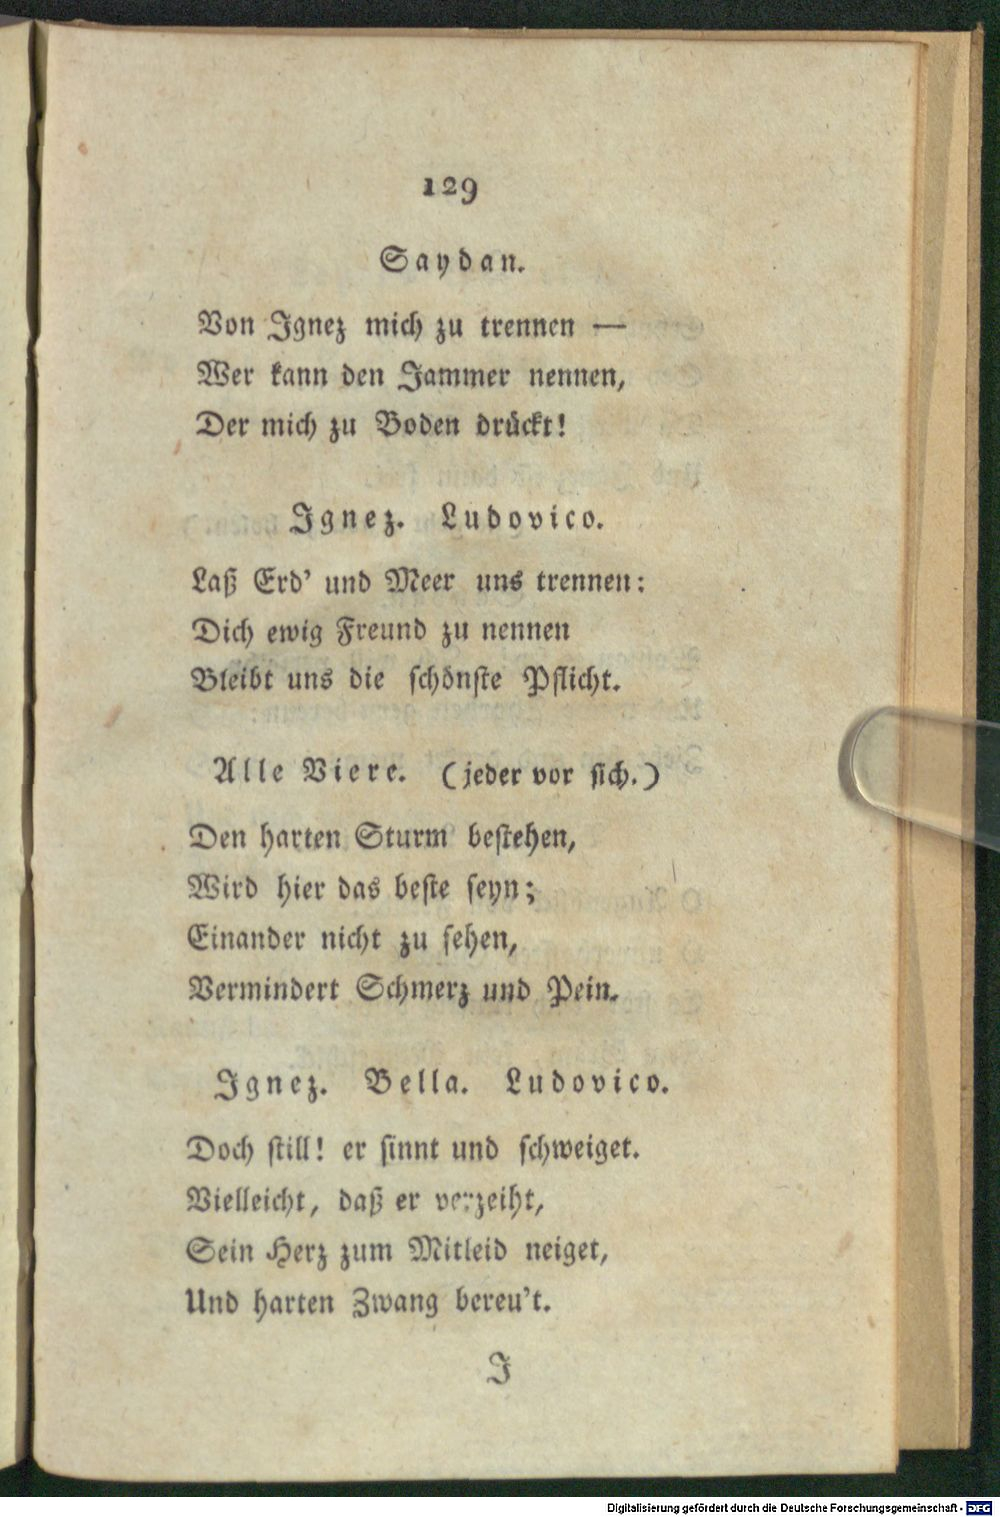 129
Saydan.
Von Ignez mich zu trennen —
Wer kann den Jammer nennen,
Der mich zu Boden drückt!
Ignez. Ludovico.
Laß Erd' und Meer uns trennen:
Dich ewig Freund zu nennen
Bleibt uns die schönste Pflicht.
Alle Viere. (jeder vor sich.)
Den harten Sturm bestehen,
Wird hier das beste seyn;
Einander nicht zu sehen,
Vermindert Schmerz und Pein.
Ignez. Bella. Ludovico.
Doch still! er sinnt und schweiget.
Vielleicht, daß er verzeiht,
Sein Herz zum Mitleid neiget,
Und harten Zwang bereu't.
J
Digitalisierung gefördert durch die Deutsche Forschungsgemeinschaft - DFG